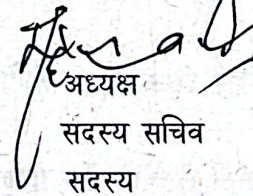 अध्यक्ष
सदस्य सचिव
सदस्य